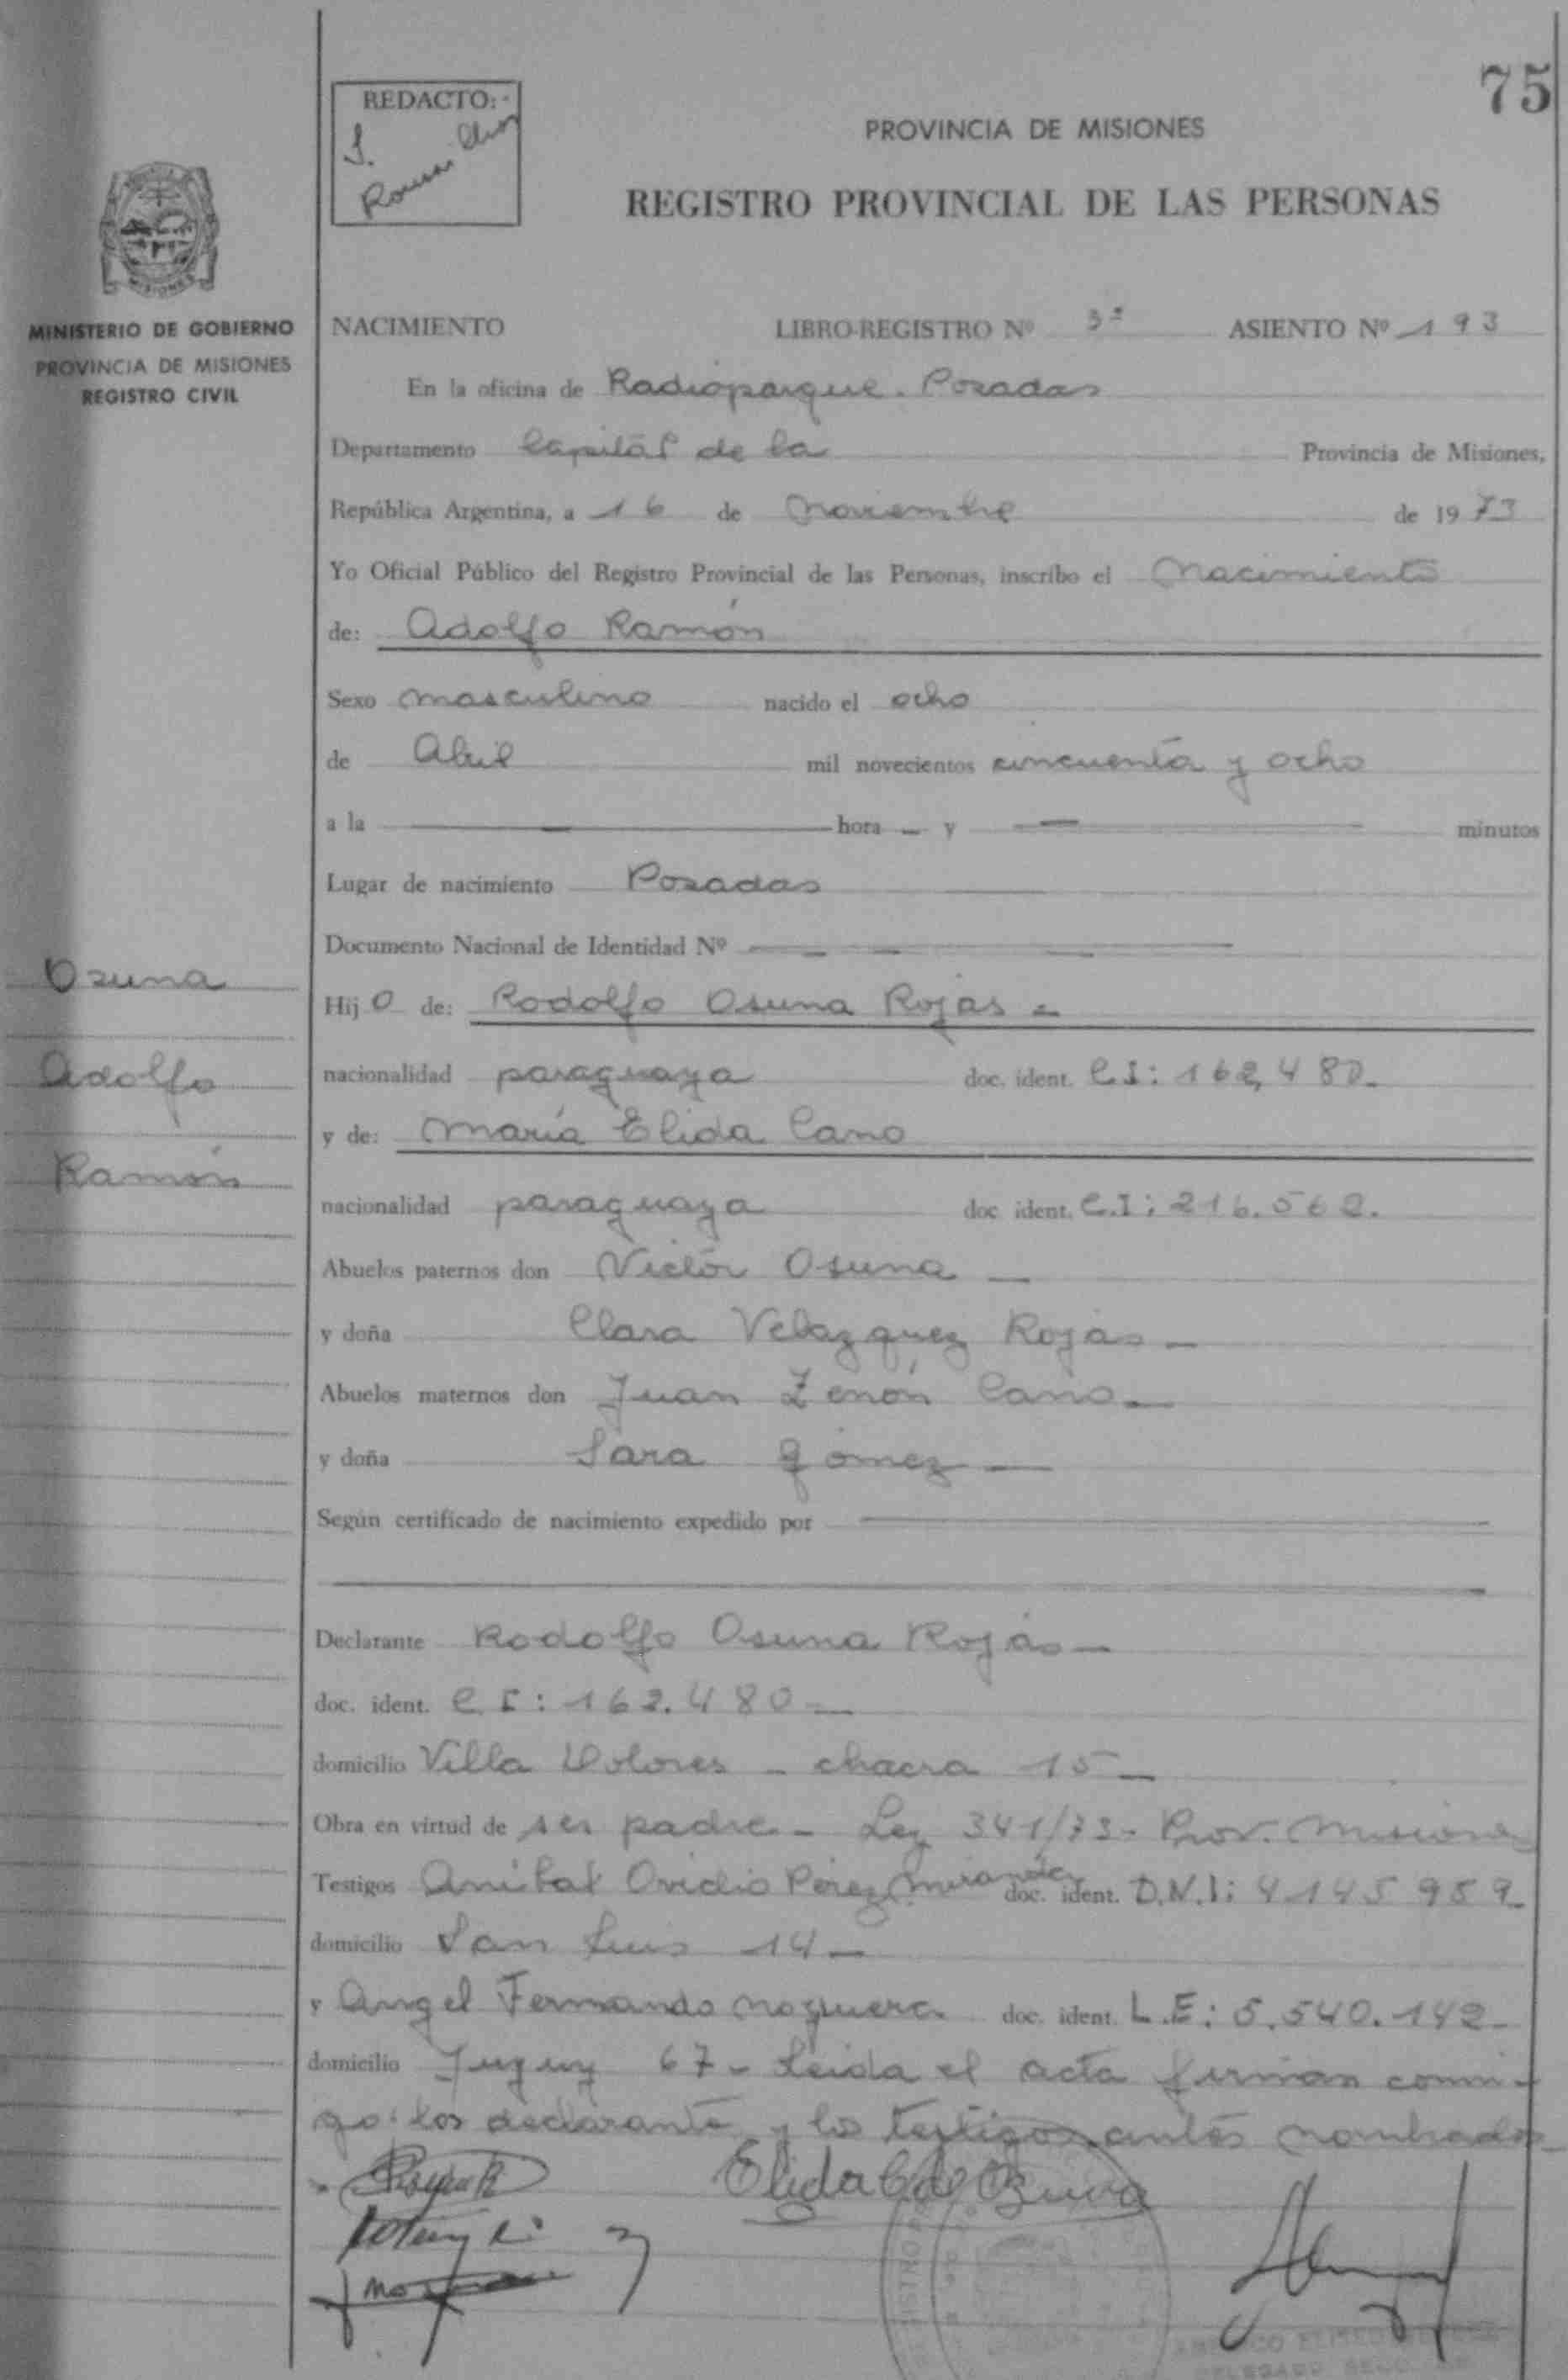 75
REDACTO:-
J.
PROVINCIA DE MISIONES
REGISTRO PROVINCIAL DE LAS PERSONAS
MISIONES
MINISTERIO DE GOBIERNO
PROVINCIA DE MISIONES
REGISTRO CIVIL
NACIMIENTO LIBRO-REGISTRO Nº 3º ASIENTO Nº 193
En la oficina de Radioparque. Posadas
Departamento Capital de la Provincia de Misiones,
República Argentina, a 16 de Noviembre de 1973
Yo Oficial Público del Registro Provincial de las Personas, inscribo el Nacimiento
de: Adolfo Ramón
Sexo masculino nacido el ocho
de Abril mil novecientos cincuenta y ocho
a la — hora — y — minutos
Lugar de nacimiento Posadas
Documento Nacional de Identidad Nº — — — —
Osuna
Adolfo
Ramón
Hijo de: Rodolfo Osuna Rojas -
nacionalidad paraguaya doc. ident. C.I: 162,480-
y de: María Elida Cano
nacionalidad paraguaya doc ident. C.I: 216.562.
Abuelos paternos don Victór Osuna —
y doña Clara Velazquez Rojas —
Abuelos maternos don Juan Zenón Cano —
y doña Sara Gómez —
Según certificado de nacimiento expedido por
Declarante Rodolfo Osuna Rojas —
doc. ident. C I: 162.480 —
domicilio Villa Dolores - chacra 15 —
Obra en virtud de ser padre - Ley 341/73- Prov. Misiones
Testigos Anibal Ovidio Pérez Miranda doc. ident. D.N.I: 4145959-
domicilio San Luis 14 —
y Angel Fernando Noguera doc. ident. L.E: 5.540.142-
domicilio Jujuy 67 - Leída el acta firman conmi-
go los declarante y los testigos antes nombrados
Elida C de Ozuna
DELEGADO